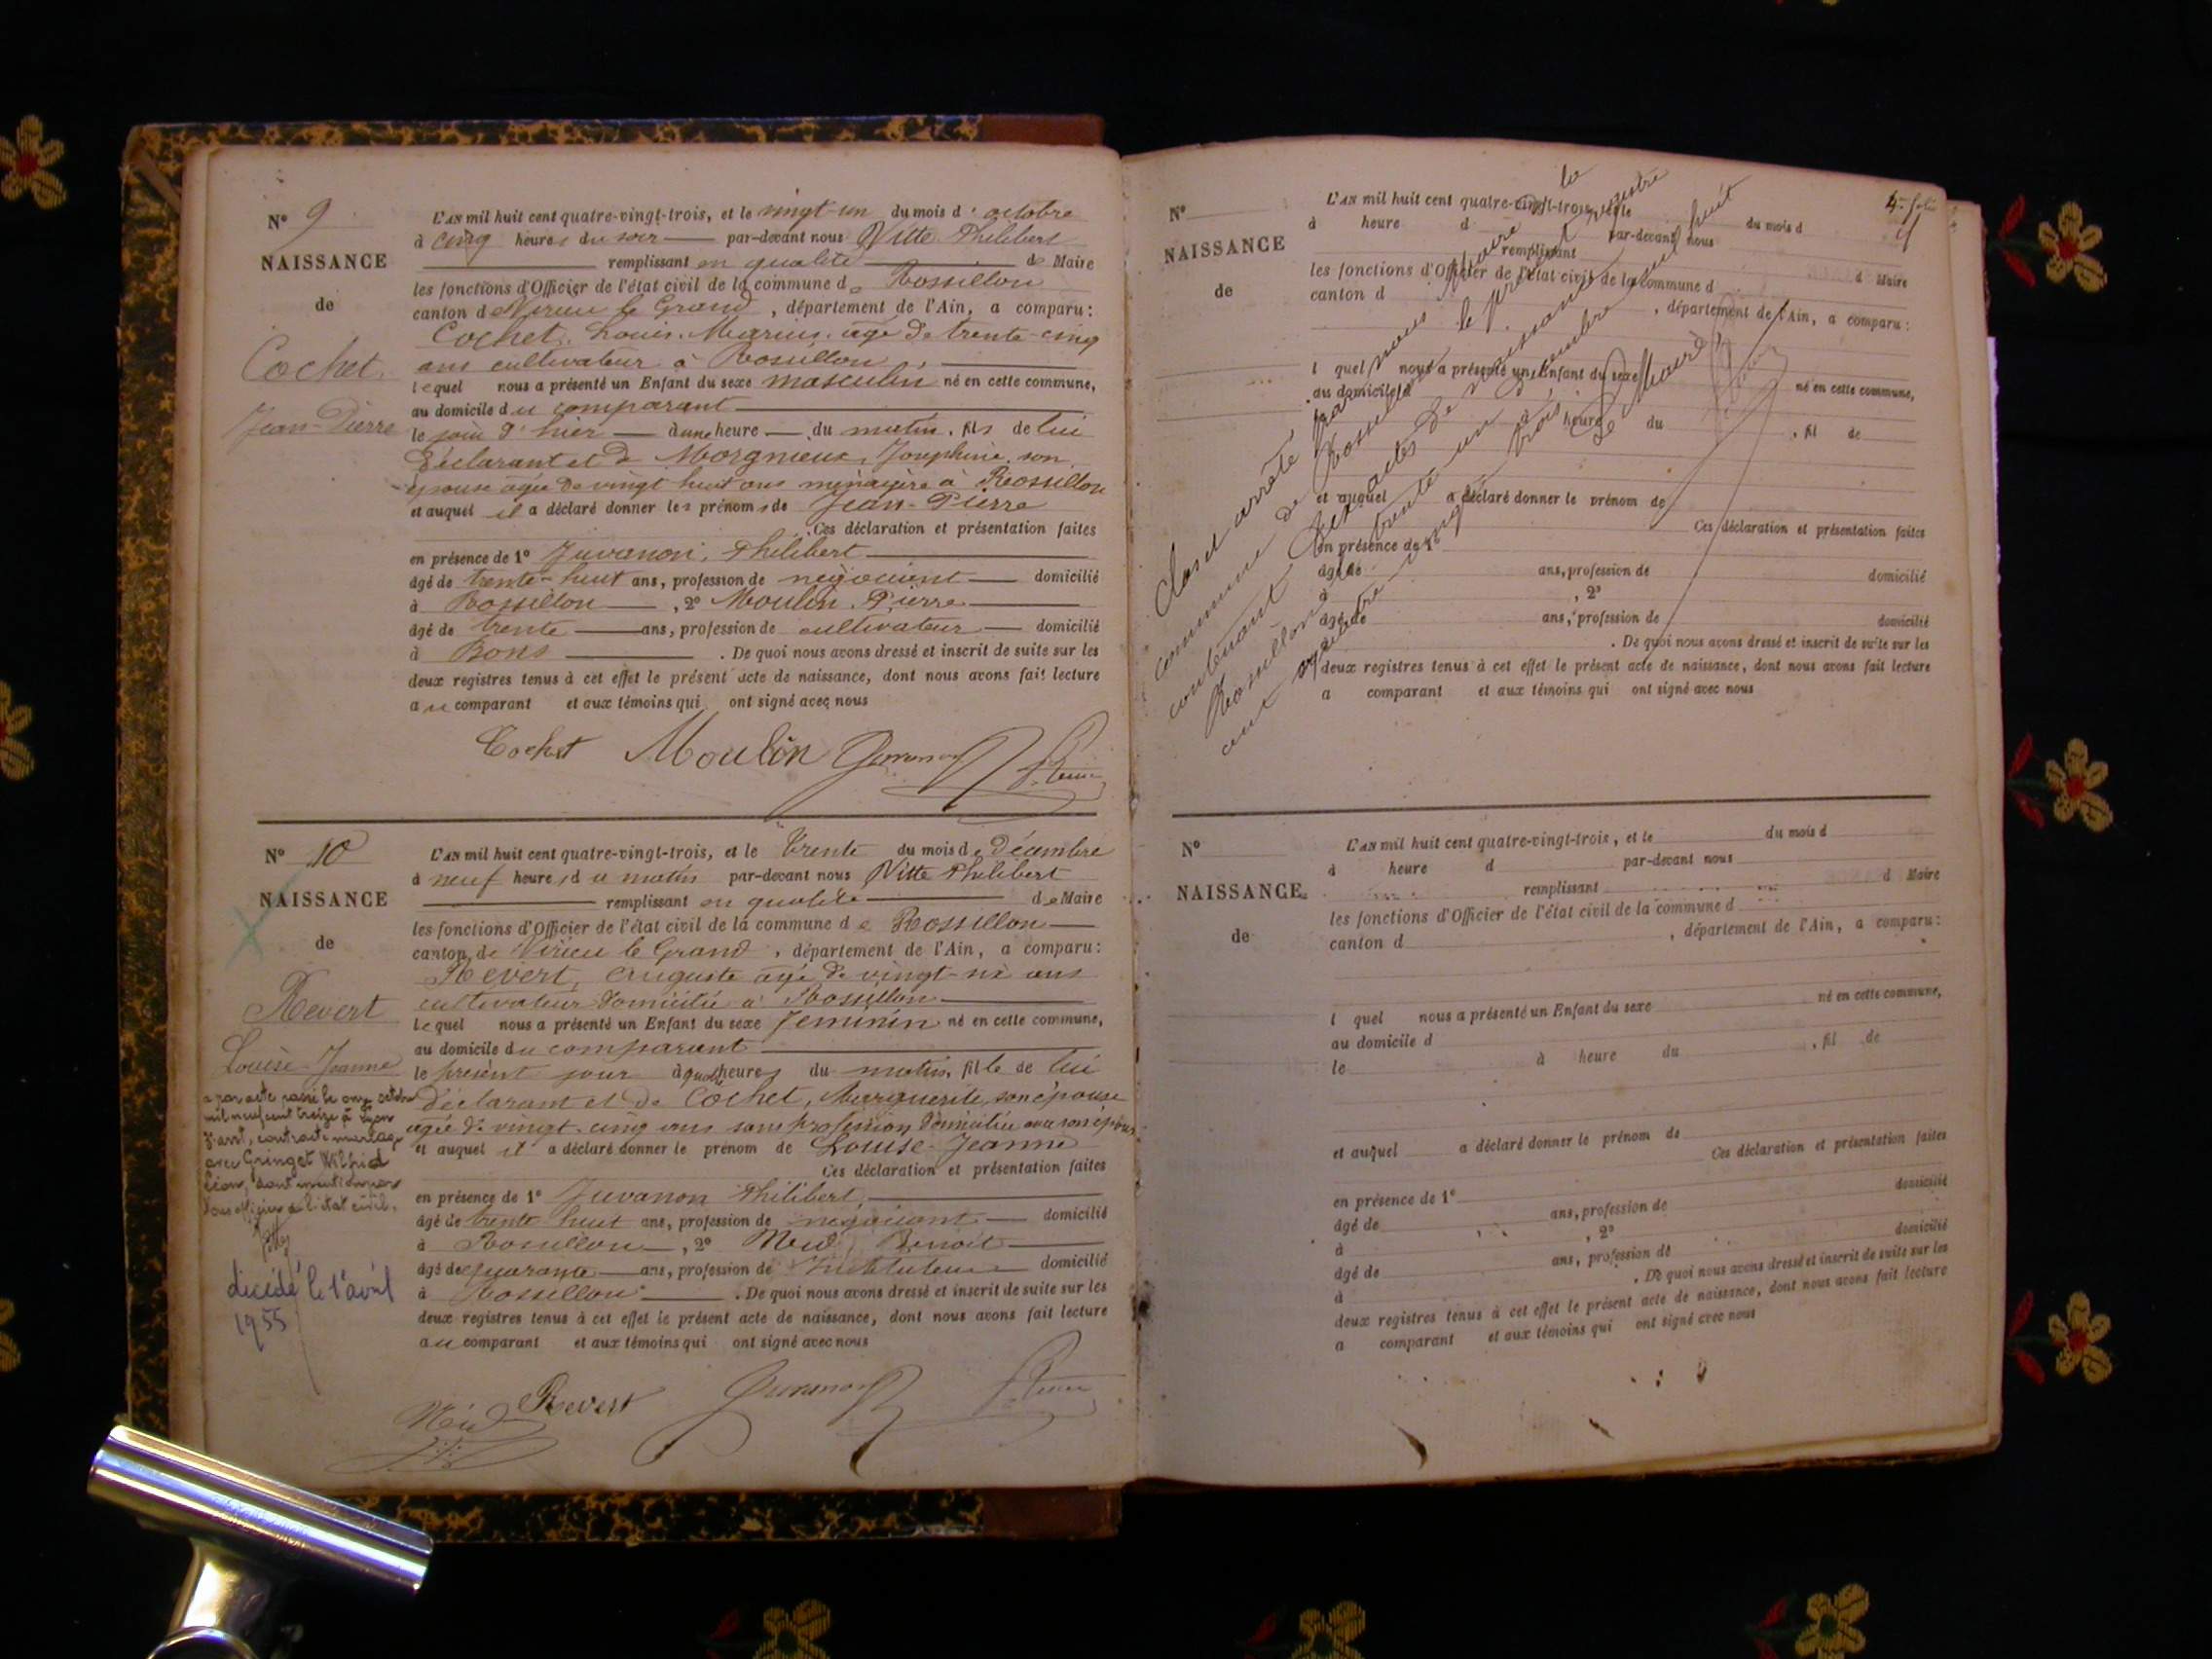 N° 9
NAISSANCE
de
Cochet
Jean-Pierre
L'AN mil huit cent quatre-vingt-trois, et le vingt-un du mois d'octobre
à cinq heures du soir par-devant nous Vitte Philibert
remplissant en qualité de Maire
les fonctions d'Officier de l'état civil de la commune de Rossillon
canton de Virieu le Grand, département de l'Ain, a comparu:
Cochet, Louis-Marius, âgé de trente-cinq
ans cultivateur à Rossillon,
lequel nous a présenté un Enfant du sexe masculin né en cette commune,
au domicile du comparant
le jour d'hier à une heure du matin, fils de lui
déclarant et de Morgnieux, Joséphine, son
épouse agée de vingt huit ans ménagère à Rossillon
et auquel il a déclaré donner les prénoms de Jean-Pierre
Ces déclaration et présentation faites
en présence de 1° Juvanon, Philibert
âgé de trente-huit ans, profession de négociant domicilié
à Rossillon, 2° Moulin, Pierre
âgé de trente ans, profession de cultivateur domicilié
à Bons. De quoi nous avons dressé et inscrit de suite sur les
deux registres tenus à cet effet le présent acte de naissance, dont nous avons fait lecture
au comparant et aux témoins qui ont signé avec nous
Cochet Moulin Juvanon
N° 10
NAISSANCE
de
Revert
Louise-Jeanne
a par acte passé le onze octobre
mil neuf cent treize à Lyon
3e arrt, contracté mariage
avec Gringet Wilfrid
Léon, dont mention par
nous officier de l'état civil.
décédé le 1er avril
1955
L'AN mil huit cent quatre-vingt-trois, et le trente du mois de décembre
à neuf heures du matin par-devant nous Vitte Philibert
remplissant en qualité de Maire
les fonctions d'Officier de l'état civil de la commune de Rossillon
canton de Virieu le Grand, département de l'Ain, a comparu:
Revert, Auguste âgé de vingt-six ans
cultivateur domicilié à Rossillon
lequel nous a présenté un Enfant du sexe féminin né en cette commune,
au domicile du comparant
le présent jour à quatre heures du matin, fille de lui
déclarant et de Cochet, Marguerite, son épouse
agée de vingt-cinq ans sans profession domiciliée avec son époux
et auquel il a déclaré donner le prénom de Louise-Jeanne
Ces déclaration et présentation faites
en présence de 1° Juvanon Philibert,
âgé de trente huit ans, profession de négociant domicilié
à Rossillon, 2° Benoit
âgé de quarante ans, profession de Instituteur domicilié
à Rossillon. De quoi nous avons dressé et inscrit de suite sur les
deux registres tenus à cet effet le présent acte de naissance, dont nous avons fait lecture
au comparant et aux témoins qui ont signé avec nous
Revert Juvanon
4me folio
N°
NAISSANCE
de
L'AN mil huit cent quatre-vingt-trois, et le du mois d
à heure d par-devant nous
remplissant d Maire
les fonctions d'Officier de l'état civil de la commune d
canton d , département de l'Ain, a comparu:
l quel nous a présenté un Enfant du sexe né en cette commune,
au domicile d
le à heure du , fil de
et auquel a déclaré donner le prénom de
Ces déclaration et présentation faites
en présence de 1°
âgé de ans, profession de domicilié
à , 2°
âgé de ans, profession de domicilié
à . De quoi nous avons dressé et inscrit de suite sur les
deux registres tenus à cet effet le présent acte de naissance, dont nous avons fait lecture
a comparant et aux témoins qui ont signé avec nous
Clos et arrêté par nous Maire de la
commune de Rossillon le présent registre
contenant dix actes de naissance
Rossillon trente un décembre mil huit
cent quatre-vingt trois.
Le Maire
N°
NAISSANCE
de
L'AN mil huit cent quatre-vingt-trois, et le du mois d
à heure d par-devant nous
remplissant d Maire
les fonctions d'Officier de l'état civil de la commune d
canton d , département de l'Ain, a comparu:
l quel nous a présenté un Enfant du sexe né en cette commune,
au domicile d
le à heure du , fil de
et auquel a déclaré donner le prénom de
Ces déclaration et présentation faites
en présence de 1°
âgé de ans, profession de domicilié
à , 2°
âgé de ans, profession de domicilié
à . De quoi nous avons dressé et inscrit de suite sur les
deux registres tenus à cet effet le présent acte de naissance, dont nous avons fait lecture
a comparant et aux témoins qui ont signé avec nous